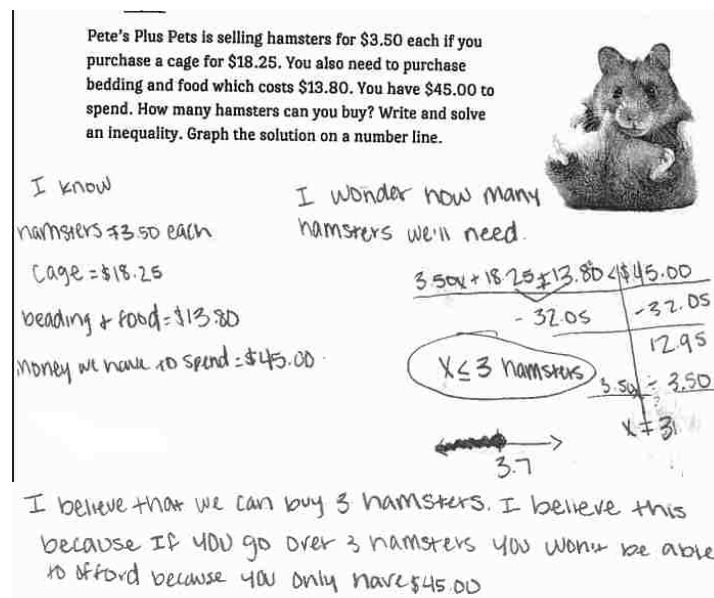 Pete's Plus Pets is selling hamsters for $3.50 each if you
purchase a cage for $18.25. You also need to purchase
bedding and food which costs $13.80. You have $45.00 to
spend. How many hamsters can you buy? Write and solve
an inequality. Graph the solution on a number line.
I know
hamsters $3.50 each
Cage = $18.25
beading + food = $13.80
money we have to spend = $45.00
I wonder how many
hamsters we'll need.
3.50x + 18.25 + 13.80 ≤ $45.00
- 32.05 -32.05
12.95
X ≤ 3 hamsters
3.50 ÷ 3.50
3.7
I believe that we can buy 3 hamsters. I believe this
because If you go over 3 hamsters you won't be able
to afford because you only have $45.00